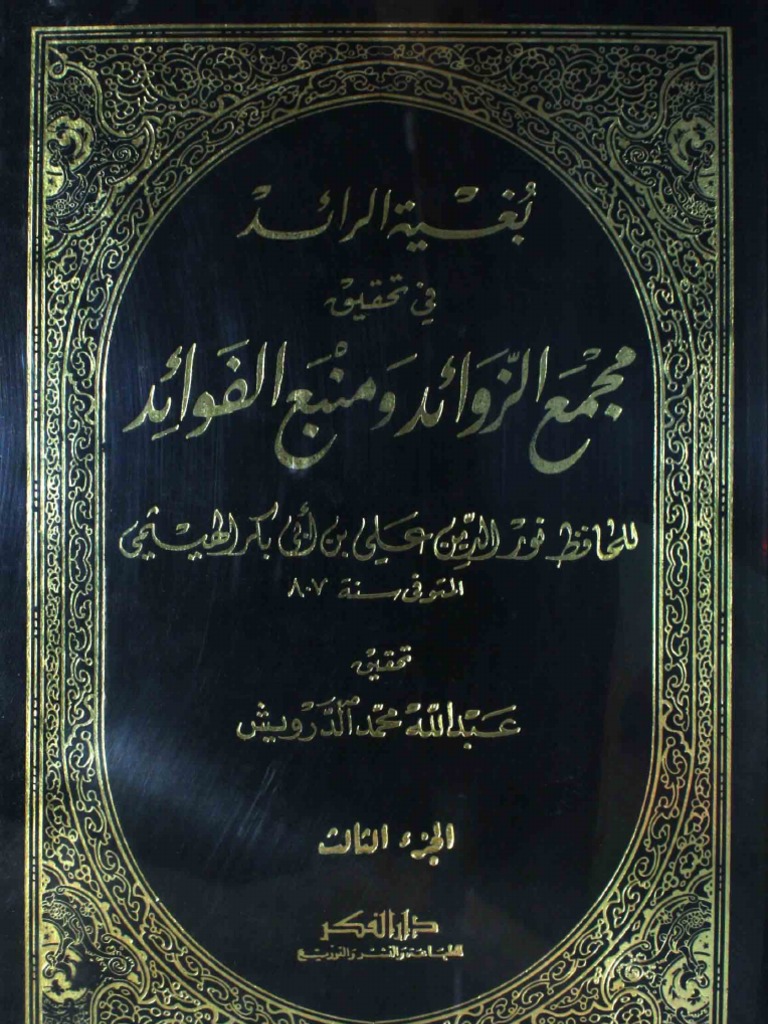 بُغيْة الرائد
في تحقيق
مجْمَع الزَّوَائد وَمنْبَع الفَوَائِد
للحافظ نور الدِّين عَلي بن أبي بكر الهيثمي
المتوفى سنة ٨٠٧
تحقيق
عَبْد اللّه محمّد الدَّرْويش
الجزء الثالث
دار الفكر
للطباعة والنشر والتوزيع